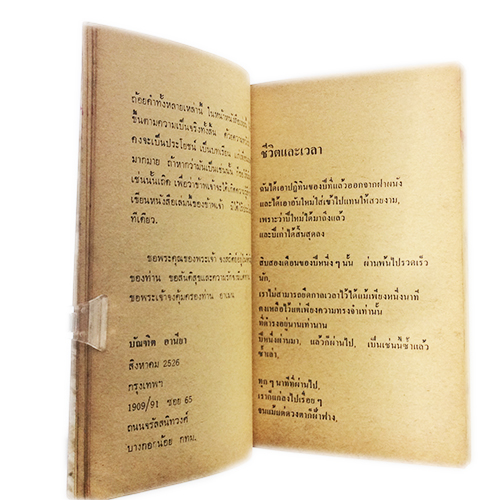 ถ้อยคำทั้งหลายเหล่านี้ ในหน้าหนังสือ
ขึ้นตามความเป็นจริงทั้งสิ้น
คงจะเป็นประโยชน์ เป็นบทเรียน
มากมาย ถ้าหากว่ามันเป็นเช่นนั้น
เช่นนั้นเถิด เพื่อว่าข้าพเจ้าจะได้
เขียนหนังสือเล่มนี้ของข้าพเจ้า
ทีเดียว.
ขอพระคุณของพระเจ้า จงสถิตอยู่
ของท่าน ขอสันติสุขและความรัก
ขอพระเจ้าจงคุ้มครองท่าน อาเมน
บัณฑิต อานียา
สิงหาคม 2526
กรุงเทพฯ
1909/91 ซอย 65
ถนนจรัลสนิทวงศ์
บางกอกน้อย กทม.
ชีวิตและเวลา
ฉันได้เอาปฏิทินของปีที่แล้วออกจากฝาผนัง
และได้เอาอันใหม่ใส่เข้าไปแทนให้สวยงาม,
เพราะว่าปีใหม่ได้มาถึงแล้ว
และปีเก่าได้สิ้นสุดลง
สิบสองเดือนของปีหนึ่ง ๆ นั้น ผ่านพ้นไปรวดเร็ว
นัก,
เราไม่สามารถยึดกาลเวลาไว้ได้แม้เพียงหนึ่งนาที
คงเหลือไว้แต่เพียงความทรงจำเท่านั้น
ที่ดำรงอยู่นานเท่านาน
ปีหนึ่งผ่านมา, แล้วก็ผ่านไป, เป็นเช่นนี้ซ้ำแล้ว
ซ้ำเล่า,
ทุก ๆ นาทีที่ผ่านไป,
เราก็แก่ลงไปเรื่อย ๆ
จนแม้แต่ดวงตาก็ฝ้าฟาง,